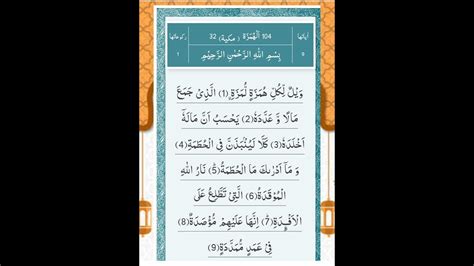 اٰیاتها 104 اَلْهُمَزَة ( مكية) 32 ركوعاتها
9 بِسْمِ اللّٰهِ الرَّحْمٰنِ الرَّحِيْمِ 1
وَيْلٌ لِّكُلِّ هُمَزَةٍ لُّمَزَةِ (1) الَّذِىْ جَمَعَ
مَالًا وَّ عَدَّدَهٗ (2) يَحْسَبُ اَنَّ مَالَهٗۤ
اَخْلَدَهٗ (3) كَلَّا لَيُنْۢبَذَنَّ فِى الْحُطَمَةِ (4)
وَ مَاۤ اَدْرٰىكَ مَا الْحُطَمَةُ (5) نَارُ اللّٰهِ
الْمُوْقَدَةُ (6) الَّتِىْ تَطَّلِعُ عَلَى
الْاَفْـِٕدَةِ (7) اِنَّهَا عَلَيْهِمْ مُّؤْصَدَةٌ (8)
فِىْ عَمَدٍ مُّمَدَّدَةٍ (9)